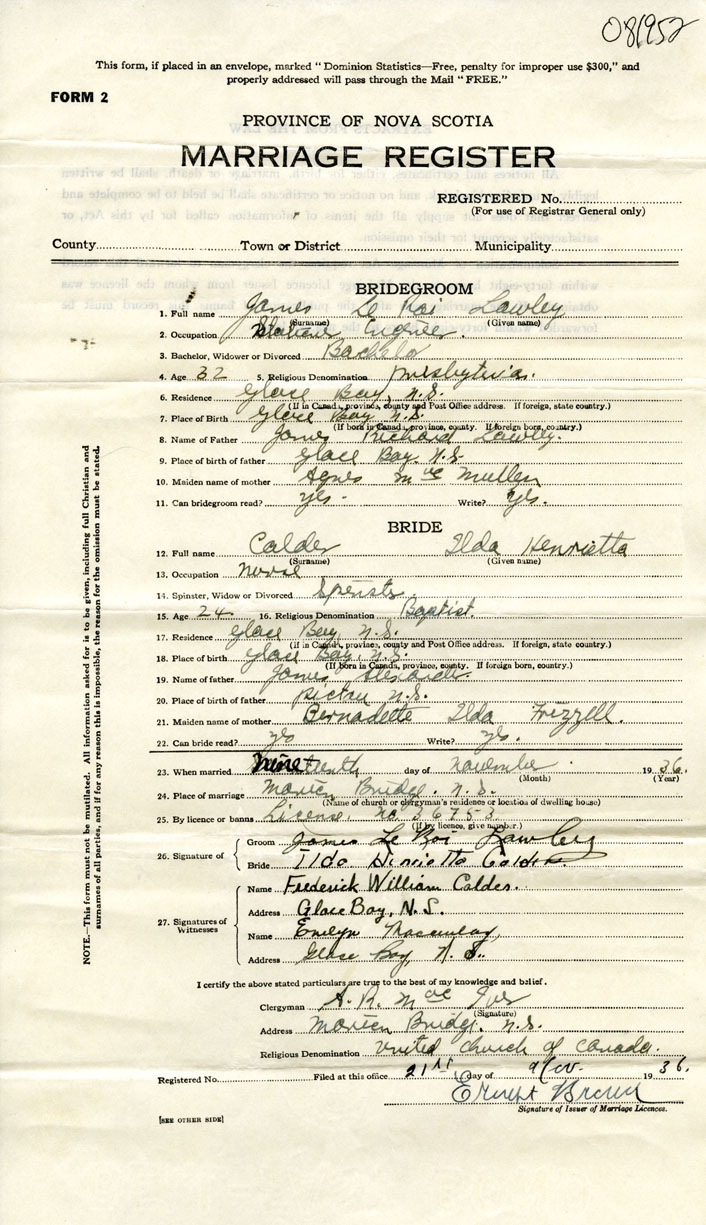 081952
This form, if placed in an envelope, marked "Dominion Statistics—Free, penalty for improper use $300," and
properly addressed will pass through the Mail "FREE."
FORM 2
PROVINCE OF NOVA SCOTIA
MARRIAGE REGISTER
REGISTERED No.
(For use of Registrar General only)
County Town or District Municipality
BRIDEGROOM
1. Full name James Le Roi Lawley
(Surname) (Given name)
2. Occupation Engineer.
3. Bachelor, Widower or Divorced Bachelor
4. Age 32 5. Religious Denomination Presbyterian.
6. Residence Glace Bay, N.S.
(If in Canada, province, county and Post Office address. If foreign, state country.)
7. Place of Birth Glace Bay N.S.
(If born in Canada, province, county. If foreign born, country.)
8. Name of Father James Richard Lawley.
9. Place of birth of father Glace Bay. N.S.
10. Maiden name of mother Agnes Mac Mullen
11. Can bridegroom read? yes. Write? yes.
BRIDE
12. Full name Calder Ilda Henrietta
(Surname) (Given name)
13. Occupation nurse
14. Spinster, Widow or Divorced Spinster
15. Age 24 16. Religious Denomination Baptist.
17. Residence Glace Bay, N.S.
(If in Canada, province, county and Post Office address. If foreign, state country.)
18. Place of birth Glace Bay, N.S.
(If born in Canada, province, county. If foreign born, country.)
19. Name of father James Alexander.
20. Place of birth of father Pictou N.S.
21. Maiden name of mother Bernadette Ilda Frizzell.
22. Can bride read? yes Write? yes.
23. When married Nineteenth day of November 1936.
(Month) (Year)
24. Place of marriage Morien Bridge. N.S.
(Name of church or clergyman's residence or location of dwelling house)
25. By licence or banns License. No 36753
(If by licence, give number.)
26. Signature of
Groom James Le Roi Lawley
Bride Ilda Henrietta Calder
27. Signatures of Witnesses
Name Frederick William Calder.
Address Glace Bay, N.S.
Name Evelyn Macaulay
Address Glace Bay N.S.
I certify the above stated particulars are true to the best of my knowledge and belief.
Clergyman A. R. Mac
(Signature)
Address Morien Bridge. N.S.
Religious Denomination United Church of Canada.
Registered No. Filed at this office 21st day of Nov. 1936.
Ernest Brown
Signature of Issuer of Marriage Licences.
[SEE OTHER SIDE]
NOTE.—This form must not be mutilated. All information asked for is to be given, including full Christian and
surnames of all parties, and if for any reason this is impossible, the reason for the omission must be stated.